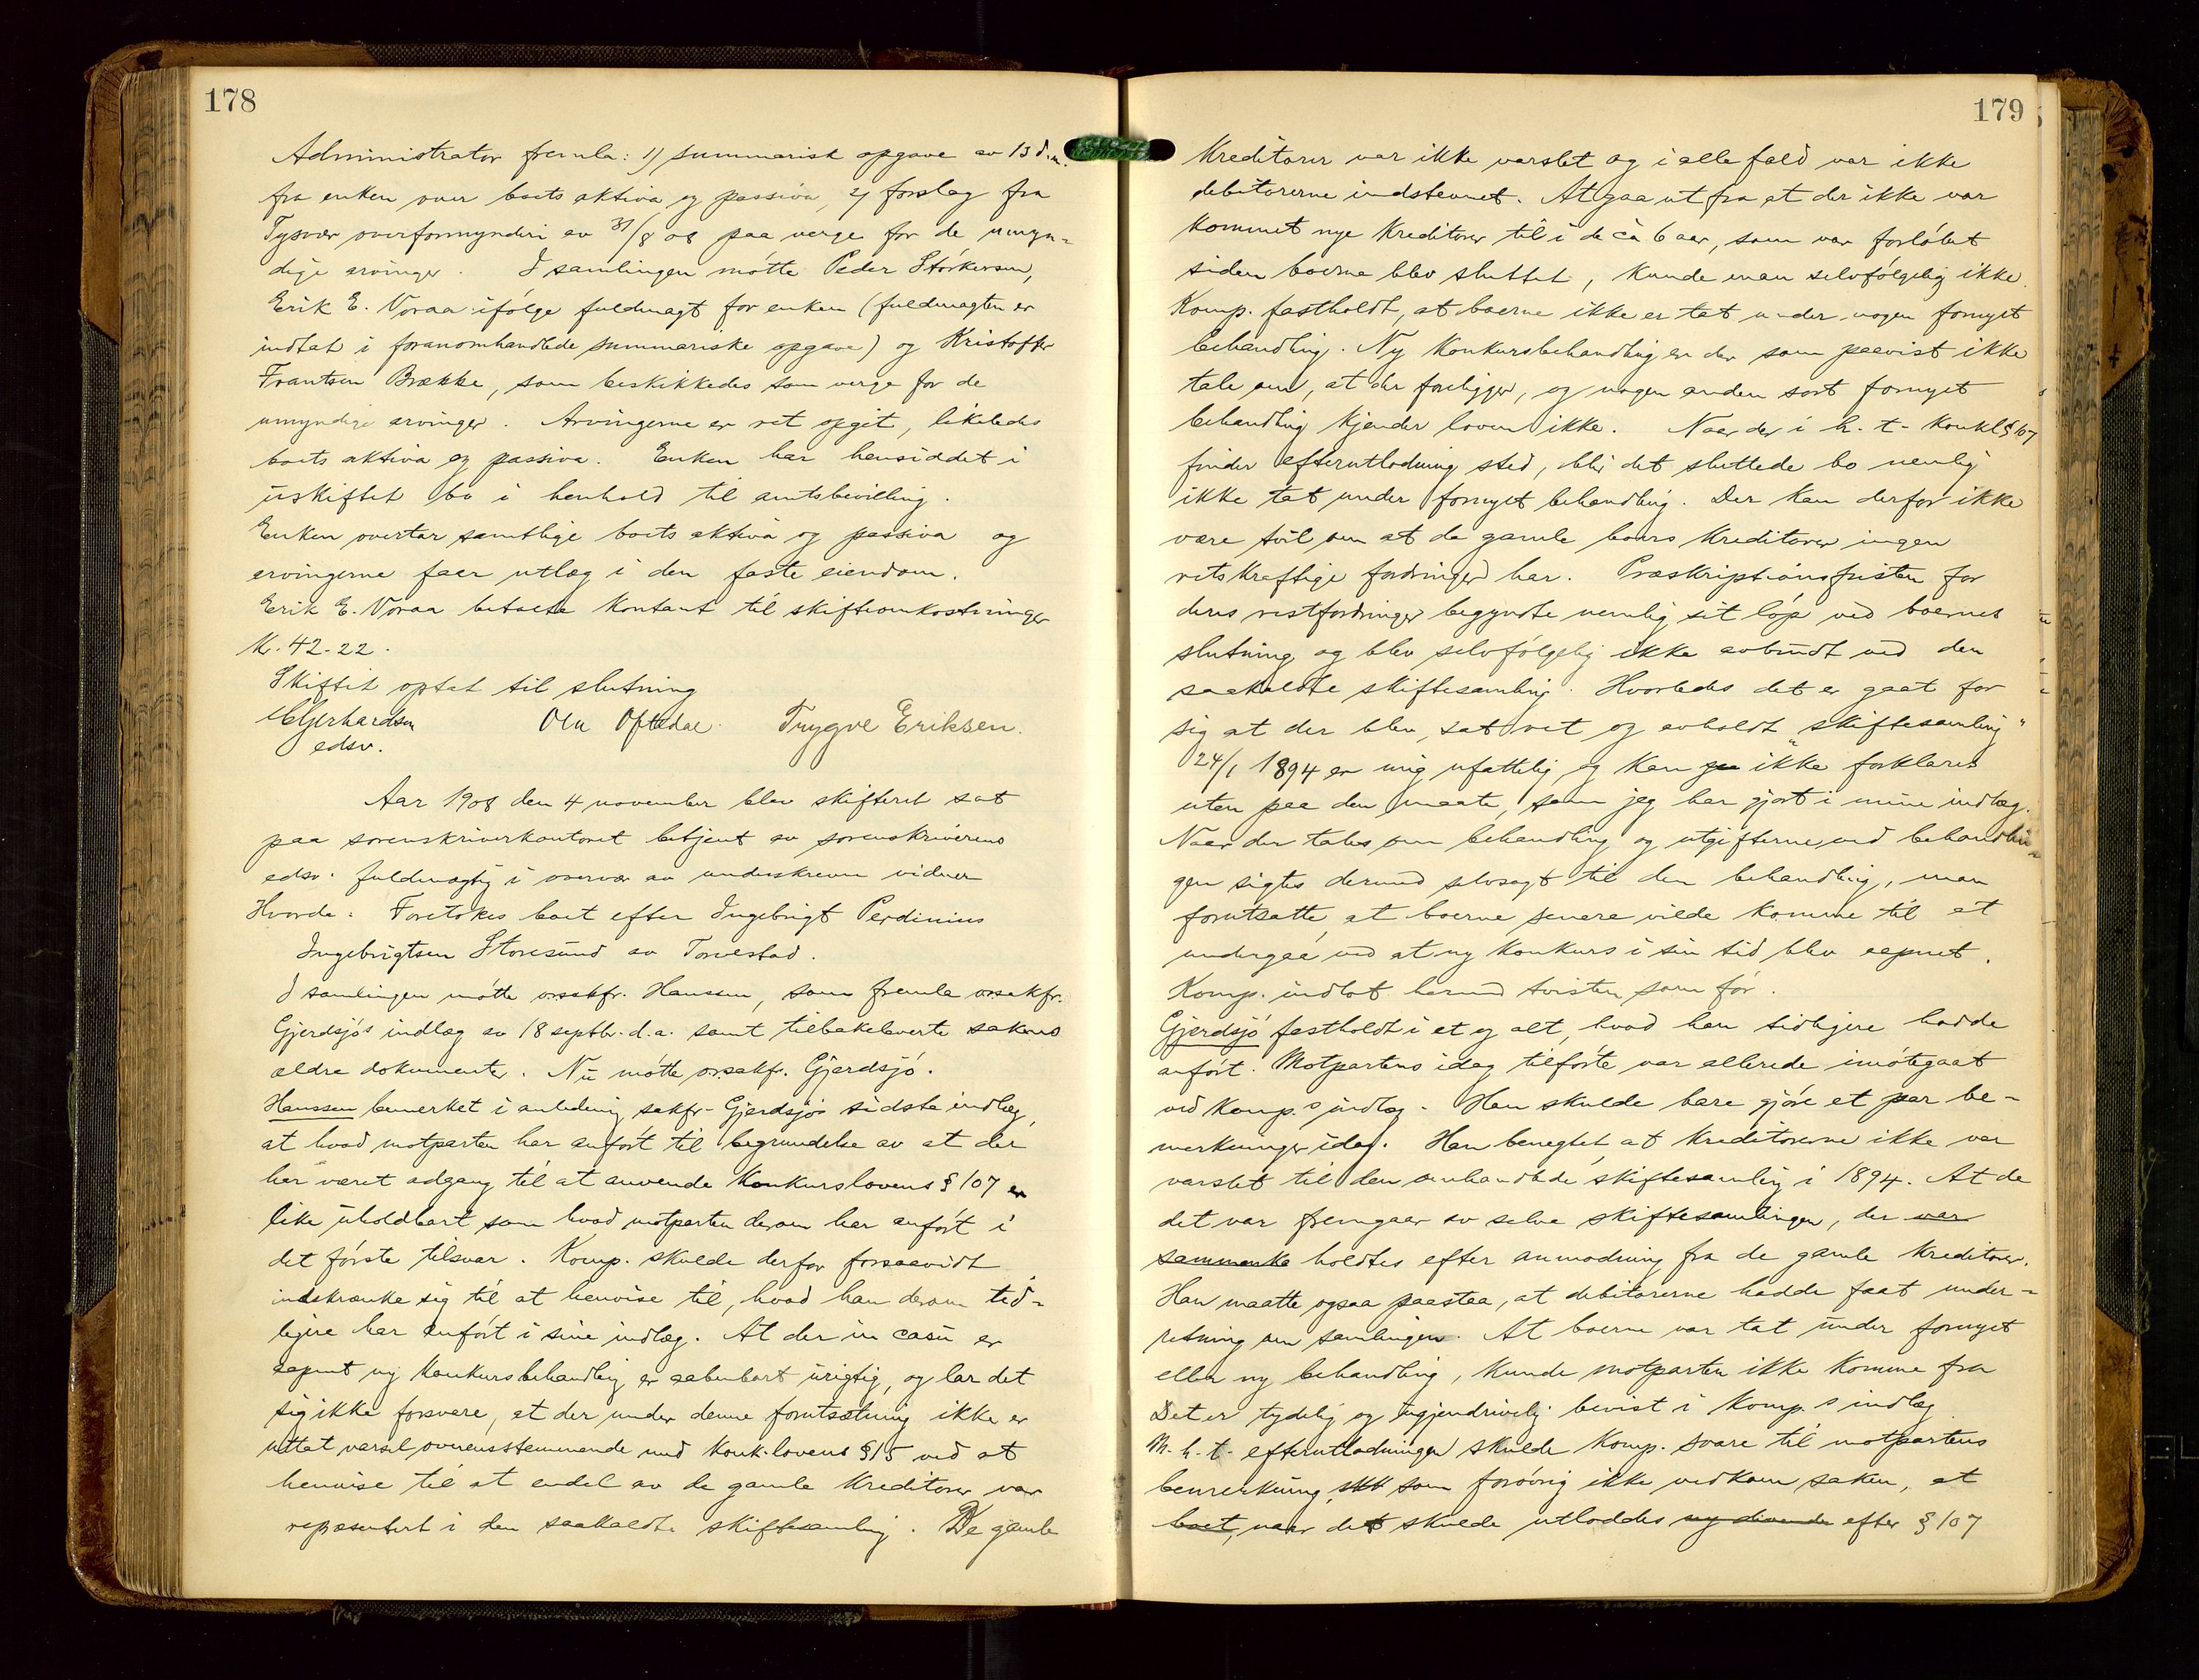 178
Administrator fremla: 1) summarisk opgave av 13 d.m.
fra enken over boets aktiva og passiva, 2) forslag fra
Tysvær overformynderi av 31/8 08 paa verge for de umyn-
dige arvinger. I samlingen møtte Peder Størkersen,
Erik E. Voraa ifølge fuldmagt for enken (fuldmagten er
indtat i foranomhandlede summariske opgave) og Kristoffer
Frantsen Brække, som beskikkedes som verge for de
umyndige arvinger. Arvingerne er ret opgit, likeledes
boets aktiva og passiva. Enken har hensiddet i
uskiftet bo i henhold til amtsbevilling.
Enken overtar samtlige boets aktiva og passiva og
arvingerne faar utlæg i den faste eiendom.
Erik E. Voraa betalte kontant til skifteomkostninger
kr. 42.22.
Skiftet optat til slutning
Gjerhardsen Ole Oftedal. Trygve Eriksen.
edsv.
Aar 1908 den 4 november blev skifteret sat
paa sorenskriverkontoret betjent av sorenskriverens
edsv. fuldmægtig i overvær av underskrevne vidner
Hvorda: Foretokes boet efter Ingebrigt Perdinius
Ingebrigtsen Storesund av Torvestad.
I samlingen møtte o.r.sakfr. Hanssen, som fremla o.r.sakfr.
Gjerdsjø's indlæg av 18 septbr. d.a. samt tilbakeleverte sakens
ældre dokumenter. Nu møtte o.r.sakf. Gjerdsjø.
Hanssen bemerket i anledning sakfr. Gjerdsjø's sidste indlæg,
at hvad motparten har anført til begrundelse av at der
har været adgang til at anvende Konkurslovens § 107 er
like uholdbart som hvad motparten derom har anført i
det første tilsvar. Komp. skulde derfor forsaavidt
indskrænke sig til at henvise til, hvad han derom tid-
ligere har anført i sine indlæg. At der in casu er
aapnet ny konkursbehandling er aabenbart urigtig, og lar det
sig ikke forsvare, at der under denne forutsætning ikke er
uttat varsel overensstemmende med Konk.lovens § 15 ved at
henvise til at endel av de gamle kreditorer var
repræsentert i den saakaldte skiftesamling. De gamle
179
Kreditorer var ikke varslet og i alle fald var ikke
debitorerne indstevnet. At gaa ut fra at der ikke var
kommet nye kreditorer til i de ca 6 aar, som var forløbet
siden boerne blev sluttet, kunde man selvfølgelig ikke.
Komp. fastholdt, at boerne ikke er tat under nogen fornyet
behandling. Ny konkursbehandling er der som paavist ikke
tale om, at der foreligger, og nogen anden sort fornyet
behandling kjender loven ikke. Naar der i h. t. konkl § 107
finder efterutlodning sted, blir det sluttede bo nemlig
ikke tat under fornyet behandling. Der kan derfor ikke
være tvil om at de gamle boers kreditorer ingen
retskraftige fordringer har. Præskriptionsfristen for
deres restfordringer begyndte nemlig sit løp ved boernes
slutning og blev selvfølgelig ikke avbrudt ved den
saakaldte skiftesamling. Hvorledes det er gaat for
sig at der blev sat ret og avholdt "skiftesamling"
24/1 1894 er mig ufattelig og kan ikke forklares
uten paa den maate, som jeg har gjort i mine indlæg.
Naar der tales om behandling og utgifterne ved behandlin-
gen sigtes dermed selvsagt til den behandling, man
forutsatte, at boerne senere vilde komme til at
undergaa ved at ny konkurs i sin tid blev aapnet.
Komp. indlot hermed tvisten som før.
Gjerdsjø fastholdt i et og alt, hvad han tidligere hadde
anført. Motpartens idag tilførte var allerede imøtegaat
ved komp.s indlæg. Han skulde bare gjøre et par be-
merkninger idag. Han benegtet at kreditorerne ikke var
varslet til den omhandlede skiftesamling i 1894. At de
det var fremgaar av selve skiftesamlingen, der var
sammenka holdtes efter anmodning fra de gamle kreditorer.
Han maatte ogsaa paastaa, at debitorerne hadde faat under-
retning om samlingen. At boerne var tat under fornyet
eller ny behandling, kunde motparten ikke komme fra
Det er tydelig og ugjendrivelig bevist i komp.s indlæg
M. h. t. efterutlodningen skulde komp. svare til motpartens
bemerkning, som forøvrig ikke vedkom saken, at
boet, naar det skulde utloddes efter § 107